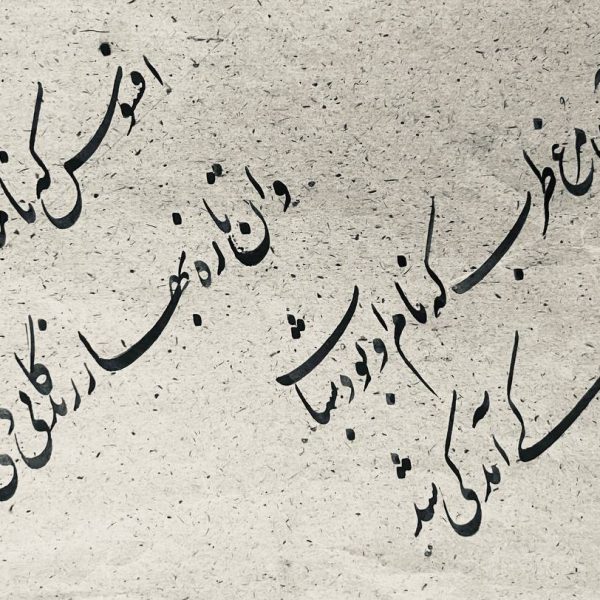 افسوس که نامـ
وان تازه بهار زندگانی د
مرغ طرب که نام او بود شباب
که کی آمد کی شد